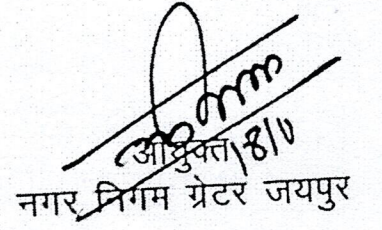 आयुक्त 18/11
नगर निगम ग्रेटर जयपुर